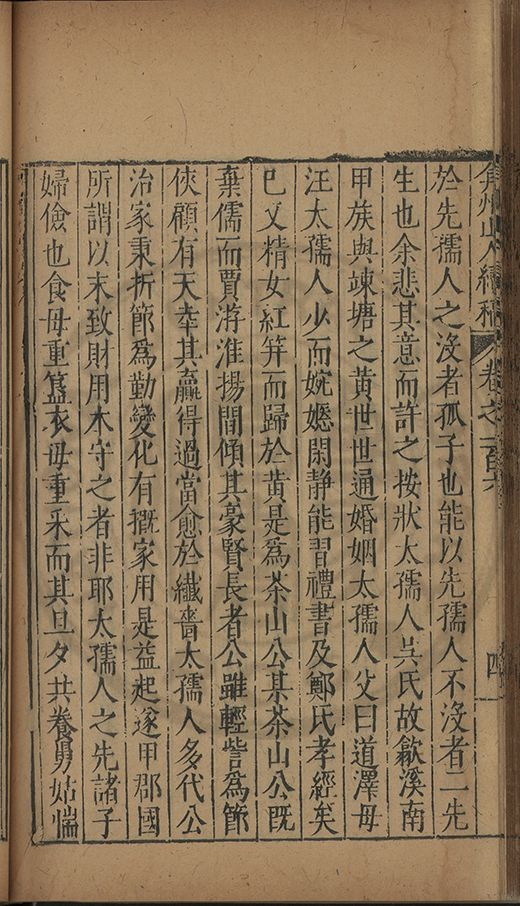 弇州山人續稿 卷之一百六 四
於先孺人之沒者孤子也能以先孺人不沒者二先
生也余悲其意而許之按狀太孺人吳氏故歙溪南
甲族與竦塘之黃世世通婚姻太孺人父曰道澤母
汪太孺人少而婉嫕閑靜能習禮書及鄭氏孝經矣
已又精女紅笄而歸於黃是為茶山公某茶山公既
棄儒而賈游淮揚間傾其豪賢長者公雖輕訾為節
俠顧有天幸其贏得過當愈於纖嗇太孺人多代公
治家秉折節為勤變化有概家用是益起遂甲郡國
所謂以末致財用本守之者非耶太孺人之先諸子
婦儉也食毋重簋衣毋重采而其旦夕共養舅姑惴